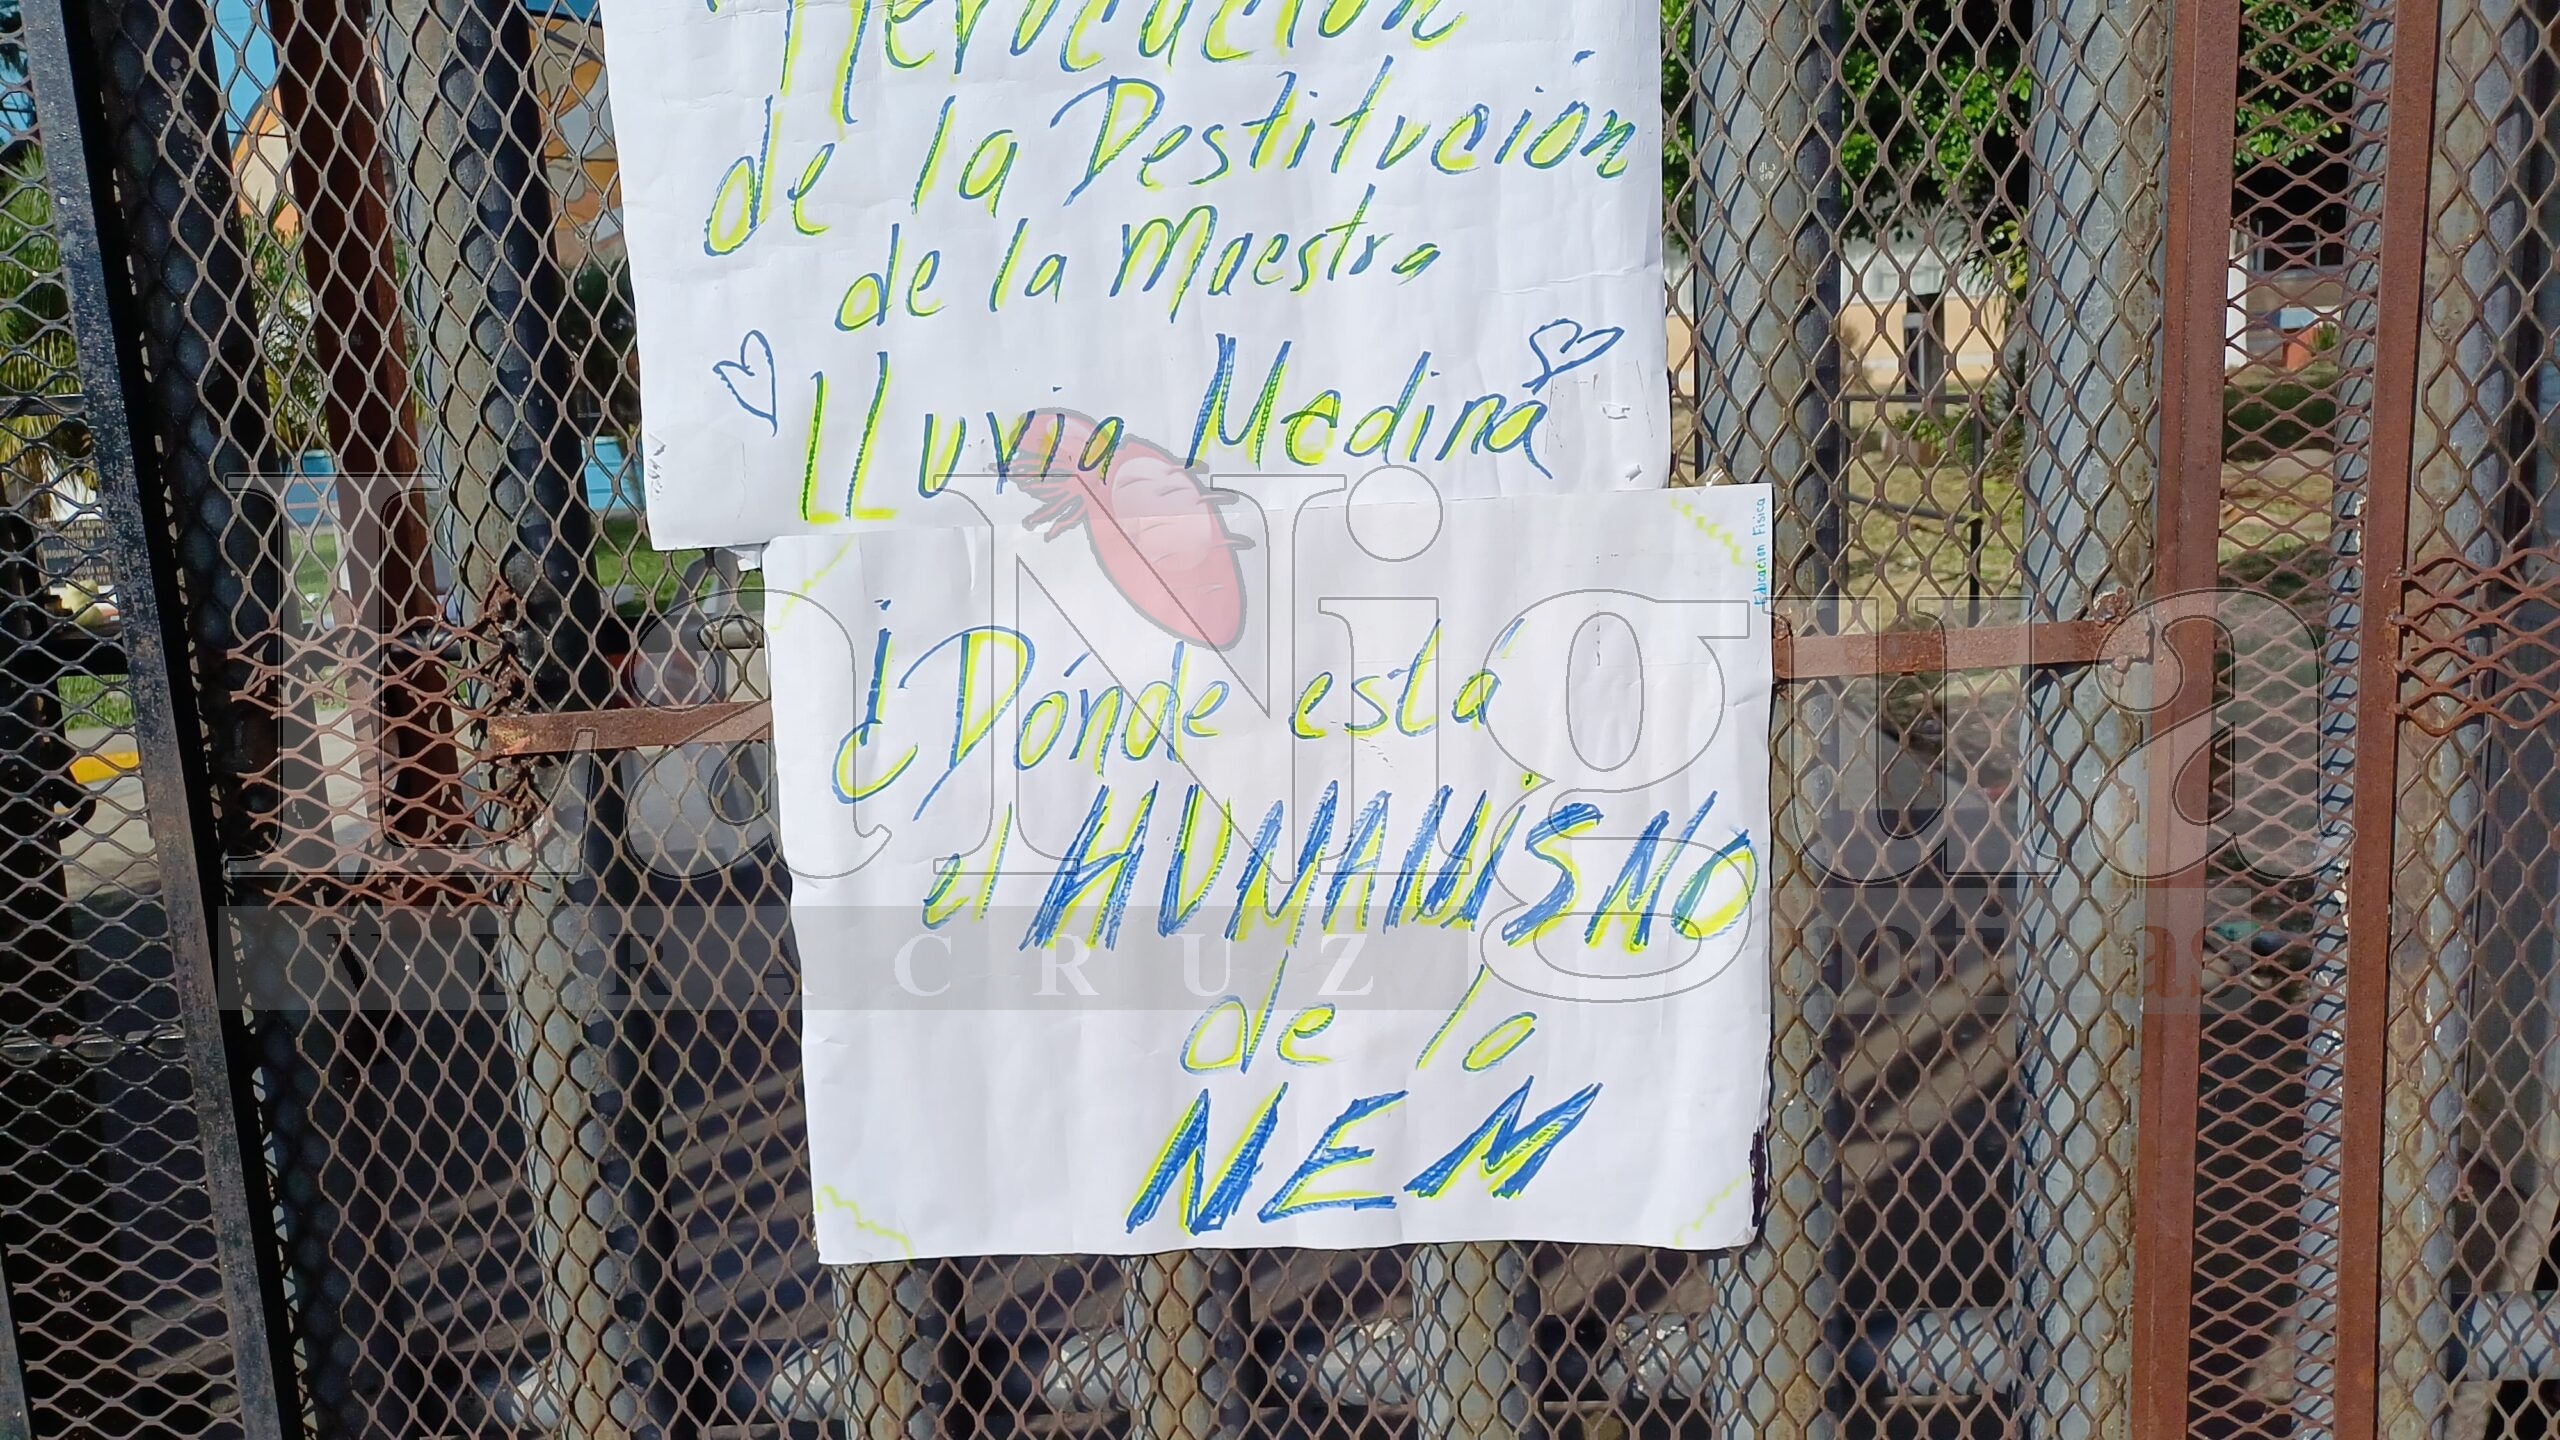 Revocación
de la Destitución
de la Maestra
LLuvia Medina
Educación Física
¿Dónde está
el HUMANISMO
de la
NEM
La Nigua
VERACRUZ noticias